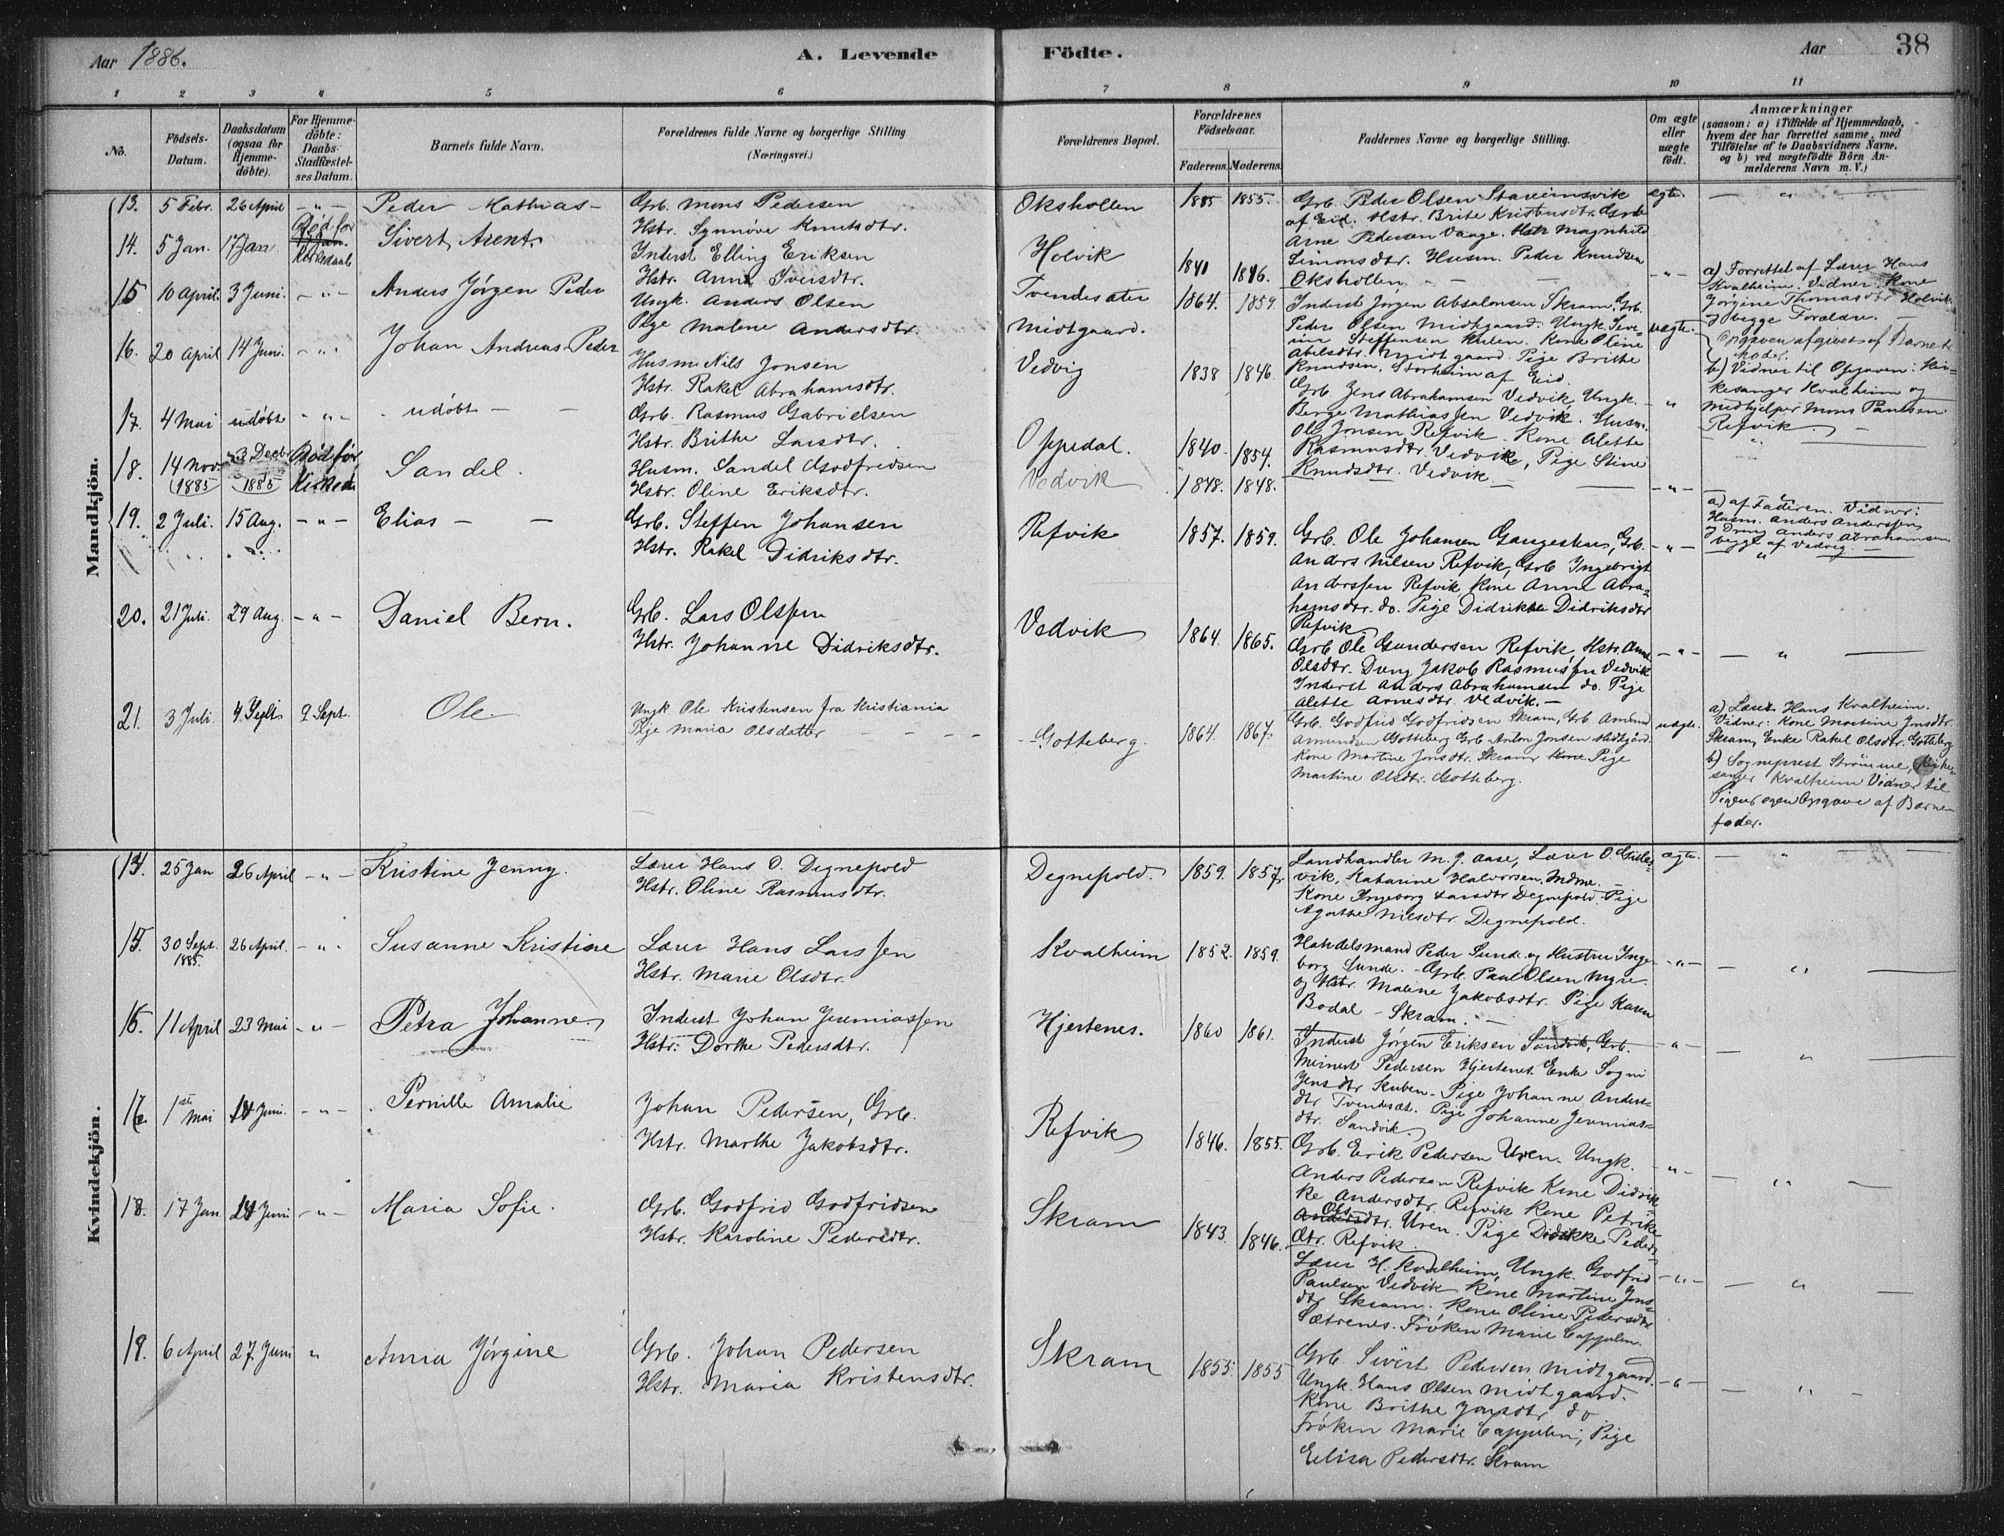 Aar 1886. A. Levende Födte. Aar 38
1 2 3 4 5 6 7 8 9 10 11
No.
Födsels-Datum.
Daabsdatum (ogsaa for Hjemme-döbte).
For Hjemme-döbte: Daabs-Stadfæstel-ses Datum.
Barnets fulde Navn.
Forældrenes fulde Navne og borgerlige Stilling. (Næringsvei.)
Forældrenes Bopæl.
Forældrenes Födselsaar.
Faderens. Moderens.
Faddernes Navne og borgerlige Stilling.
Om ægte eller uægte födt.
Anmærkninger
(saasom: a) i Tilfælde af Hjemmedaab, hvem der har forrettet samme, med Tilföielse af to Daabsvidners Navne, og b) ved uægtefödte Börn Anmelderens Navn m. V.)
Mandkjön.
13. 5 Febr. 26 April - " - Peder Mathias -
Grb. Mons Pedersen
Hstr. Synnöve Knutsdtr.
Okshollen 1855. ægte. - " -
Grb. Peder Olsen
af Eid. Hstr. Brite Kristensdtr. Grb.
Arne Pedersen Vaage. Hstr Magnhild
Simonsdtr. Husm. Peder Knudsen
Okshollen. - - -
14. 5 Jan. 17 Jan. Död før Kirkedaab Sivert Arent
Inderst Elling Eriksen
Hstr. Anna Iversdtr.
Holvik 1841 1846. - " -
a) Forrettet af Lærer Hans
Kvalheim. Vidner: Kone
Jørgine Thomasdtr Holvik
og begge Forældre. -
15 10 April. 3 Juni. - " - Anders Jørgen Peder
Ungk. Anders Olsen
Pige Malene Andersdtr.
Tvendesæter
Midtgaard. 1864. 1859. uægte.
Inderst Jørgen Absalonsen Skram, Grb.
Peder Olsen Midtgaard. Ungk. Seve-
rin Steffensen Kulen. Kone Oline
Abelsdtr. Midtgaard. Pige Brithe
Knudsen, Storheim af Eid.
Opgaven afgivet af Barnets
Moder.
b) Vidner til Opgaven: Kir-
kesanger Kvalheim og
Medhjelper Mons Paulsen
Refvik. -
16. 20 April 14 Juni. - " - Johan Andreas Peder
Husm Nils Jonsen
Hstr. Rakel Abrahamsdtr.
Vedvig 1838 1846. - " -
Grb Jens Abrahamsen Vedvik. Ungk.
Berge Mathiassen Vedvik. Husm.
Ole Jonsen Refvik. Kone Alette
Rasmusdtr. Vedvik, Pige Stine
Knudsdtr. Vedvik -
17. 4 Mai udöbt - " - udöbt - -
Grb. Rasmus Gabrielsen
Hstr. Brithe Larsdtr.
Oppedal. 1840. 1854.
18. 14 Nov. (1885) 3 Decbr 1885 Död før Kirked. Sandel.
Husm. Sandel Godfridsen
Hstr. Oline Eriksdtr.
Vedvik 1848. 1848. - " -
a) af Faderen. Vidner:
Husm. Anders Anderssen
og Dreng Anders Abrahamsen
begge af Vedvig. -
19. 2 Juli. 15 Aug. - " - Elias - -
Grb. Steffen Johansen
Hstr. Rakel Didriksdtr.
Refvik 1857. 1859. - " -
Grb. Ole Johansen Gangestun, Grb.
Anders Nilsen Refvik, Grb Ingebrigt
Anderssen Refvik, Kone Anne Abra-
hamsdtr. do. Pige Didrikke Didriksdtr
Refvik
20. 21 Juli. 29 Aug. - " - Daniel Bern.
Grb. Lars Olssen
Hstr. Johanne Didriksdtr.
Vedvik 1864. 1865. - " - - " -
Grb Ole Gundersen Refvik, Hstr. Anne
Olsdtr. Dreng Jakob Rasmussen Vedvik
Inderst Anders Abrahamsen do. Pige
Alette Arnesdtr. Vedvik. -
21. 3 Juli. 4 Septb 9 Sept. Ole
Ungk Ole Kristensen fra Kristiania
Pige Maria Olsdatter - - - -
Gotteberg. 1864. 1867. uægte.
Grb. Godfrid Godfridsen Skram, Grb Amund
Amundsen Gotteberg Grb Anton Jonsen Midtgård.
Kone Martine Jonsdtr. Skram Pige
Martine Olsdtr. Gotteberg.
a) Lærer Hans Kvalheim.
Vidner: Kone Martine Jonsdtr.
Skram, Enke Rakel Olsdtr. Gotteberg
b) Sogneprest Strömme, Kirke-
sanger Kvalheim Vidner til
Pigens egen Opgave af Barne-
fader.
Kvindekjön.
14. 25 Jan 26 April - " - Kristine Jenny.
Lærer Hans O. Degnepold
Hstr. Oline Rasmusdtr.
Degnepold. 1859. 1857. ægte. - " -
Landhandler M. J. Aase, Lærer O.
vik, Katarine Halvorsen, Mdme. -
Kone Ingeborg Larsdtr Degnepold. Pige
Agathe Nilsdtr. Degnepold.
15. 30 Sept. 1885. 26 April. - " - Susanne Kristine
Lærer Hans Larssen
Hstr. Marie Olsdtr.
Kvalheim 1852. 1859. - " - - " -
Handelsmand Peder Sunde og Hustru Inge-
borg Sunde. - Grb. Paul Olsen Myre.
og Hstr. Malene Jakobsdtr. Pige Karen
Bodal - Skram. -
16. 11 April 23 Mai - " - Petra Johanne
Inderst Johan Jeremiassen
Hstr. Dorthe Pedersdtr.
Hjertenes. 1860 1861. - " - - " -
Inderst Jørgen Eriksen Sandvik, Grb.
Meinert Pedersen Hjertenes. Enke Sogni
Jensdtr Kuben. - Pige Johanne Anders-
dtr Tvendesæt. Pige Johanne Jeremias-
dtr. Sandvik.
17. 1ste Mai 14 Juni. - " - Pernille Amalie
Johan Pedersen, Grb.
Hstr. Marthe Jakobsdtr.
Refvik 1846. 1855. - " - - " -
Grb. Erik Pedersen Uren. Ungk.
Anders Pedersen Refvik Kone Didrik-
ke Andersdtr. Refvik Kone Petrike
Olsdtr. Uren. Pige Didrikke Peders-
dtr. Refvik
18. 17 Jan 14 Juni - " - Maria Sofie.
Grb. Godfrid Godfridsen
Hstr. Karoline Pedersdtr.
Skram 1843. 1846. - " - - " -
Lærer H. Kvalheim, Ungk. Godfrid
Paulsen Vedvik Kone Martine Jons-
dtr. Skram. Kone Oline Pedersdtr
Sætrenes. Frøken Marie Cappelen.
19. 6 April 27. Juni " Anna Jørgine
Grb. Johan Pedersen
Hstr. Maria Kristensdtr.
Skram 1855. 1855 - " - - " -
Grb. Sivert Pedersen Midtgaard.
Ungk. Hans Olsen Midtgaard.
Kone Brithe Jonsdtr do
Frøken Marie Cappelen, Pige
Elisa Pedersdtr. Skram